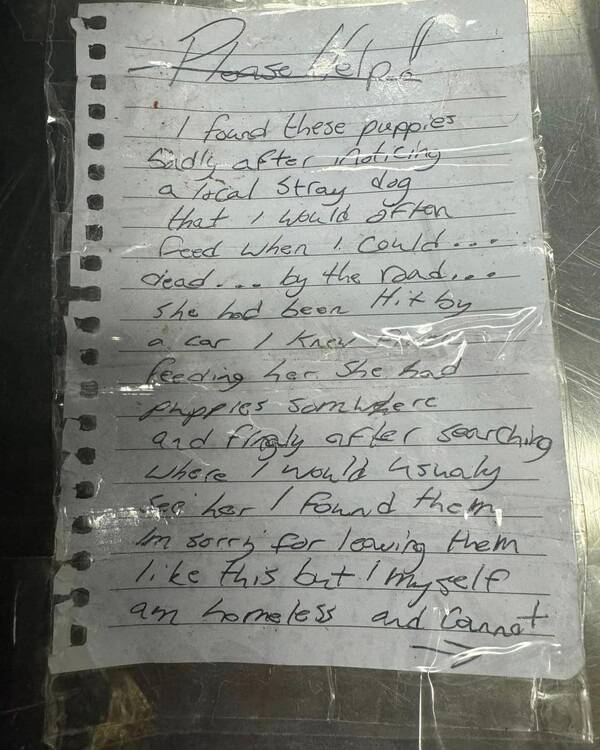 Please Help!
I found these puppies
sadly after noticing
a local stray dog
that I would often
feed when I could...
dead... by the road...
she had been Hit by
a car I knew from
feeding her she had
puppies somwhere
and finaly after searching
where I would usualy
see her I found them
Im sorry for leaving them
like this but I myself
am homeless and cannot